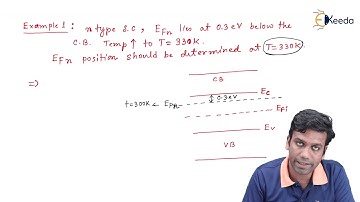 Ekeeda
Example 1 : n type S.C , EFn lies at 0.3 eV below the
C.B. Temp ↑ to T = 330K.
EFn position should be determined at T = 330K.
⇒
CB
Ec
0.3 eV
T=300K ← EFn
EFi
Ev
VB